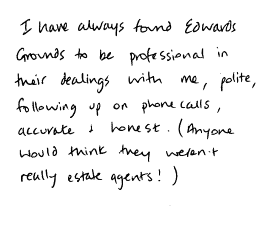 I have always found Edwards
Grounds to be professional in
their dealings with me, polite,
following up on phone calls,
accurate & honest. (Anyone
would think they weren't
really estate agents!)